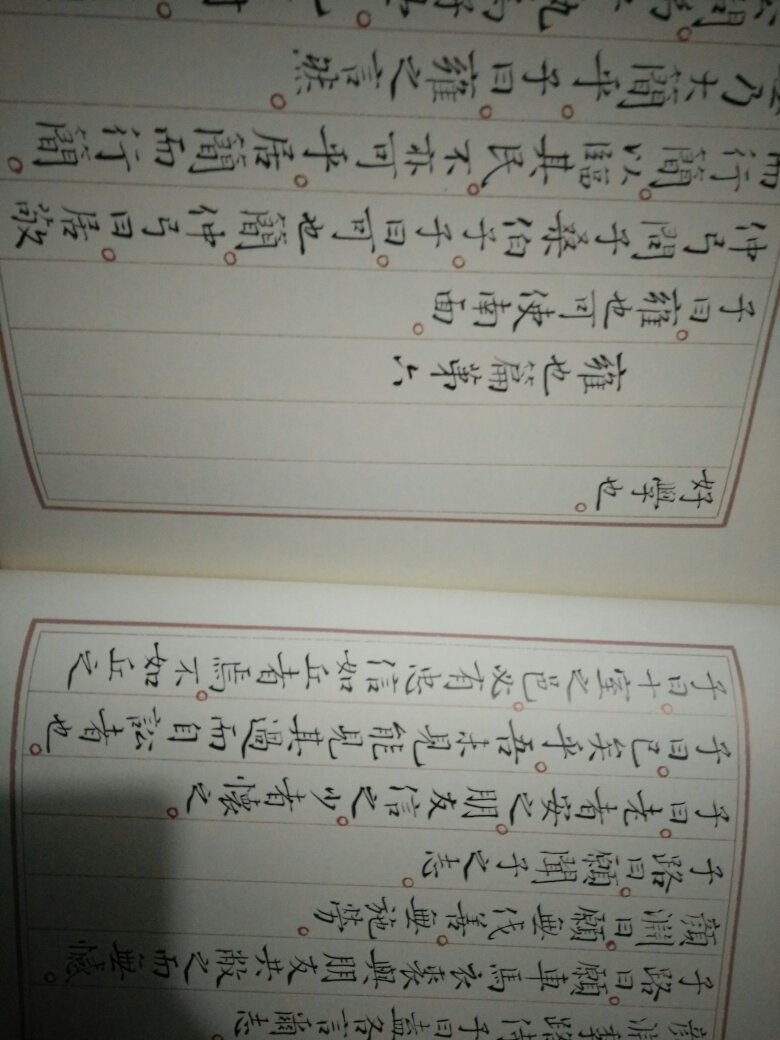 顏淵季路侍。子曰盍各言爾志
子路曰。願車馬衣裘與朋友共敝之而無憾。
顏淵曰。願無伐善。無施勞。
子路曰。願聞子之志。
子曰。老者安之。朋友信之。少者懷之。
子曰。已矣乎。吾未見能見其過而自訟者也。
子曰。十室之邑。必有忠信如丘者焉。不如丘之
好學也。
雍也篇第六
子曰。雍也可使南面。
仲弓問子桑伯子。子曰。可也簡。仲弓曰。居敬
而行簡。以臨其民。不亦可乎。居簡而行簡。
無乃大簡乎。子曰。雍之言然。